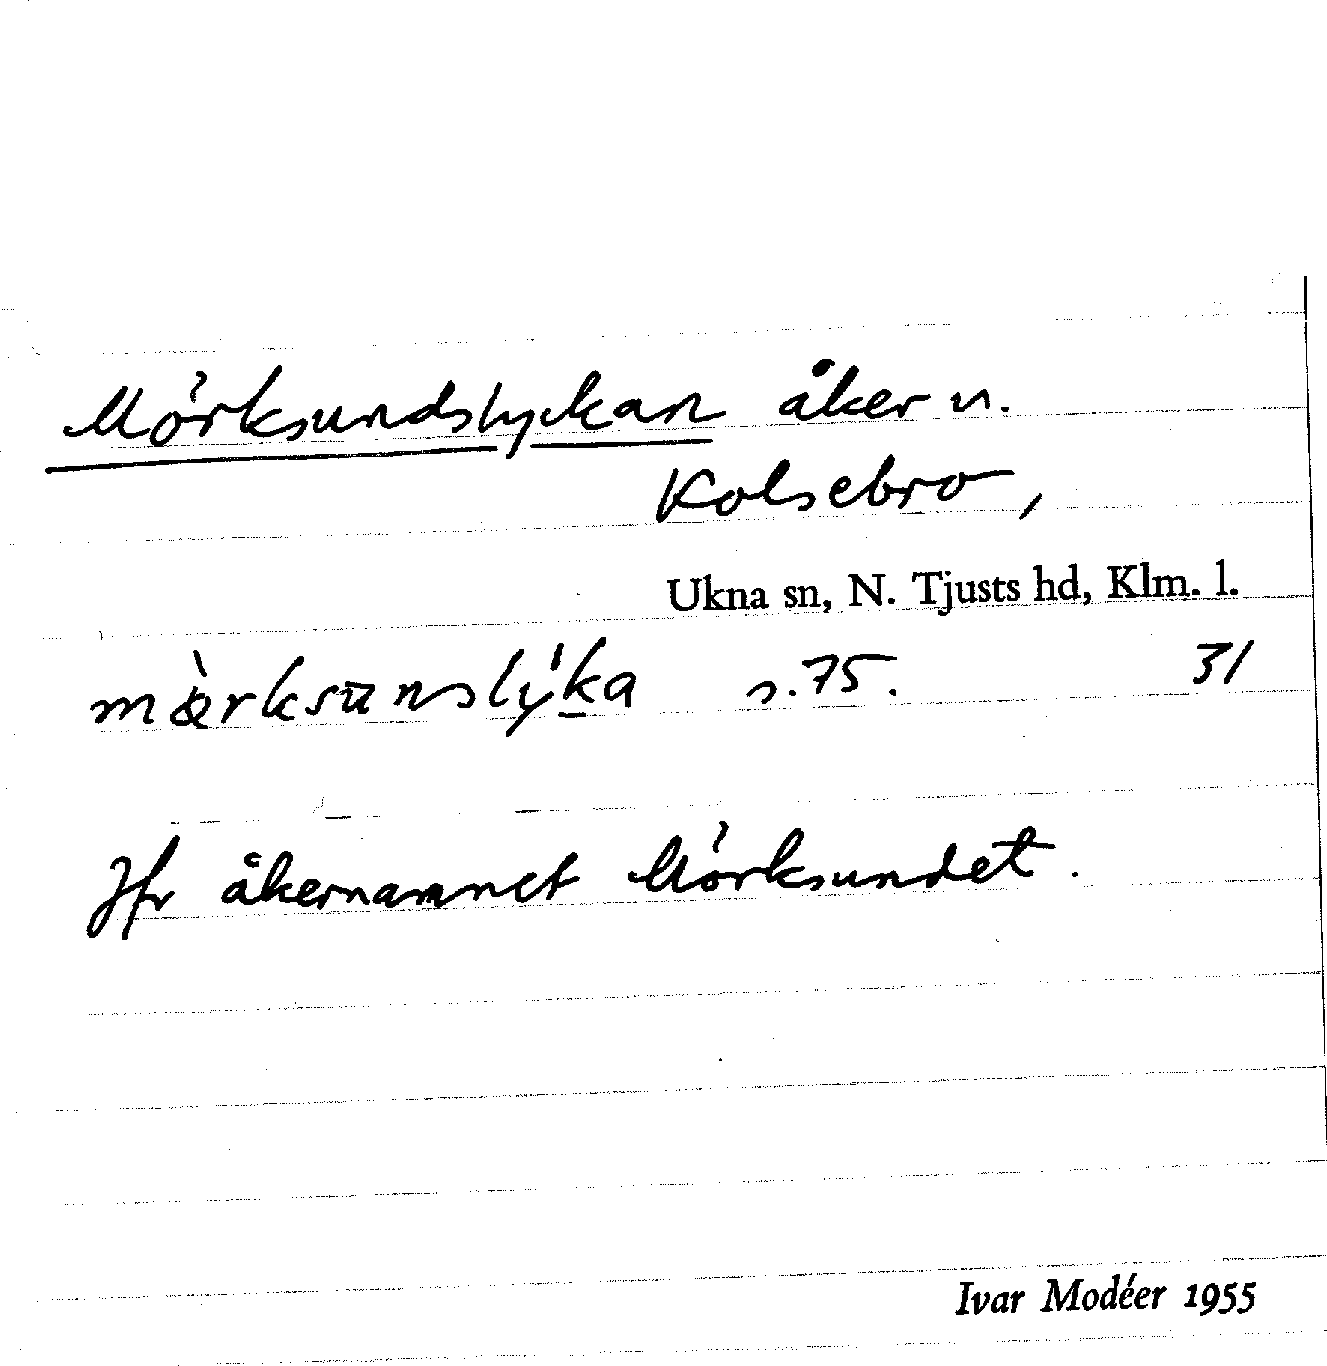 Mörksundslyckan åker n.
Kolsebro,
Ukna sn, N. Tjusts hd, Klm. l.
mœ̀rksūnslýka s. 75. 31
Jfr åkernamnet Mörksundet.
Ivar Modéer 1955